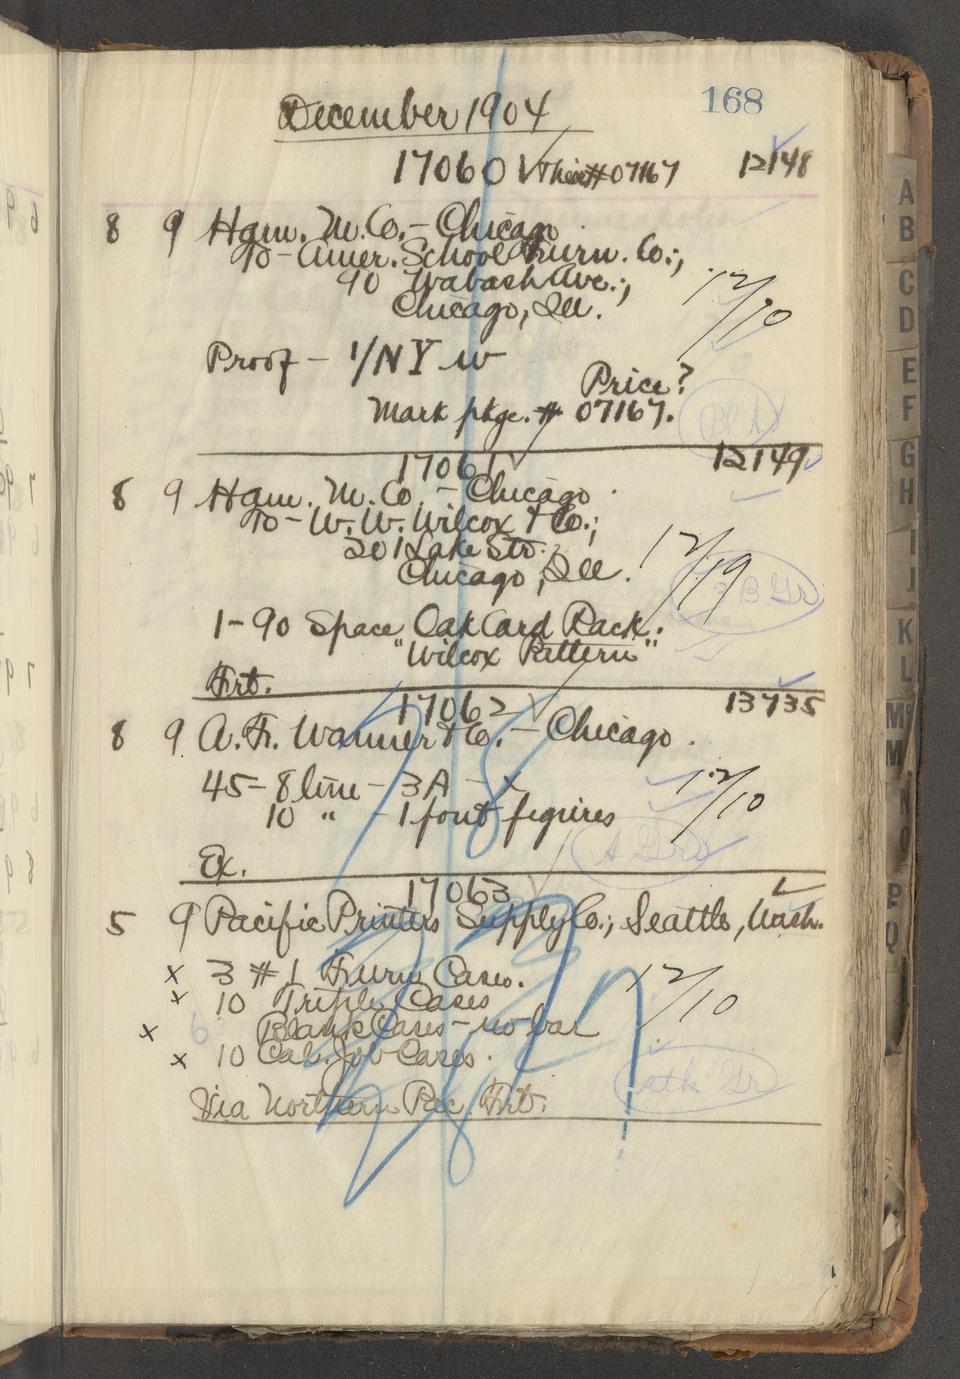 168
December 1904
17060 Their # 07167 12148
8 9 Ham. M. Co. - Chicago
To - Amer. School Furn. Co.;
90 Wabash Ave.;
Chicago, Ill.
12/10
Proof - 1/NY w
Price?
Mark pkge. # 07167.
Bl A
17061 12149
8 9 Ham. M. Co. - Chicago
To - W. W. Wilcox & Co.;
201 Lake Str.;
Chicago, Ill.
12/19
B Gr
1-90 Space Oak Card Rack.
"Wilcox Pattern"
Frt.
17062 13735
8 9 A. F. Wanner & Co. - Chicago.
45 - 8 line - 3A - x
10 " - 1 font figures
12/10
A Gra
Ex.
17063
5 9 Pacific Printers Supply Co.; Seattle, Wash.
x 3 #1 Furn Cases.
x 10 Triple Cases
x 6 Blank Cases - no bar
x 10 Cal. Job Cases.
12/10
Gr
Via Northern Pac. Frt.
A
B
C
D
E
F
G
H
I
J
K
L
M
M
N
O
P
Q